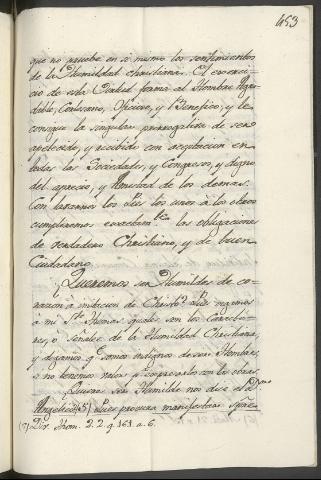 453
que no pruebe en si mismo los sentimientos
de la Humildad christiana. El exerci-
cio de esta Virtud forma al Hombre Agra-
dable, Cortesano, Oficioso, y Benefico, y le
consigue la singular prerrogativa de ser
apetecido, y recibido con aceptacion en
todas las Sociedades, y Congresos, y digno
del aprecio, y Amistad de los demas.
Con lavarnos los Pies los unos à los otros
cumpliremos exactamte las obligaciones
de verdadero Christiano, y de buen
Ciudadano.
¿Queremos ser Humildes de co-
razon à imitacion de Christo? Pues oigamos
à mi Sto Thomas quales son los Caracte-
res, o Señales de la Humildad Christiana,
y digamos q somos indignos de ser Hombres,
si no tenemos valor à comprobarlo con las obras.
Quiere ser Humilde nos dice el
Angelico (5) Pues procura manifestar
(5) Div. Thom. 2. 2. q. 161. a. 6.